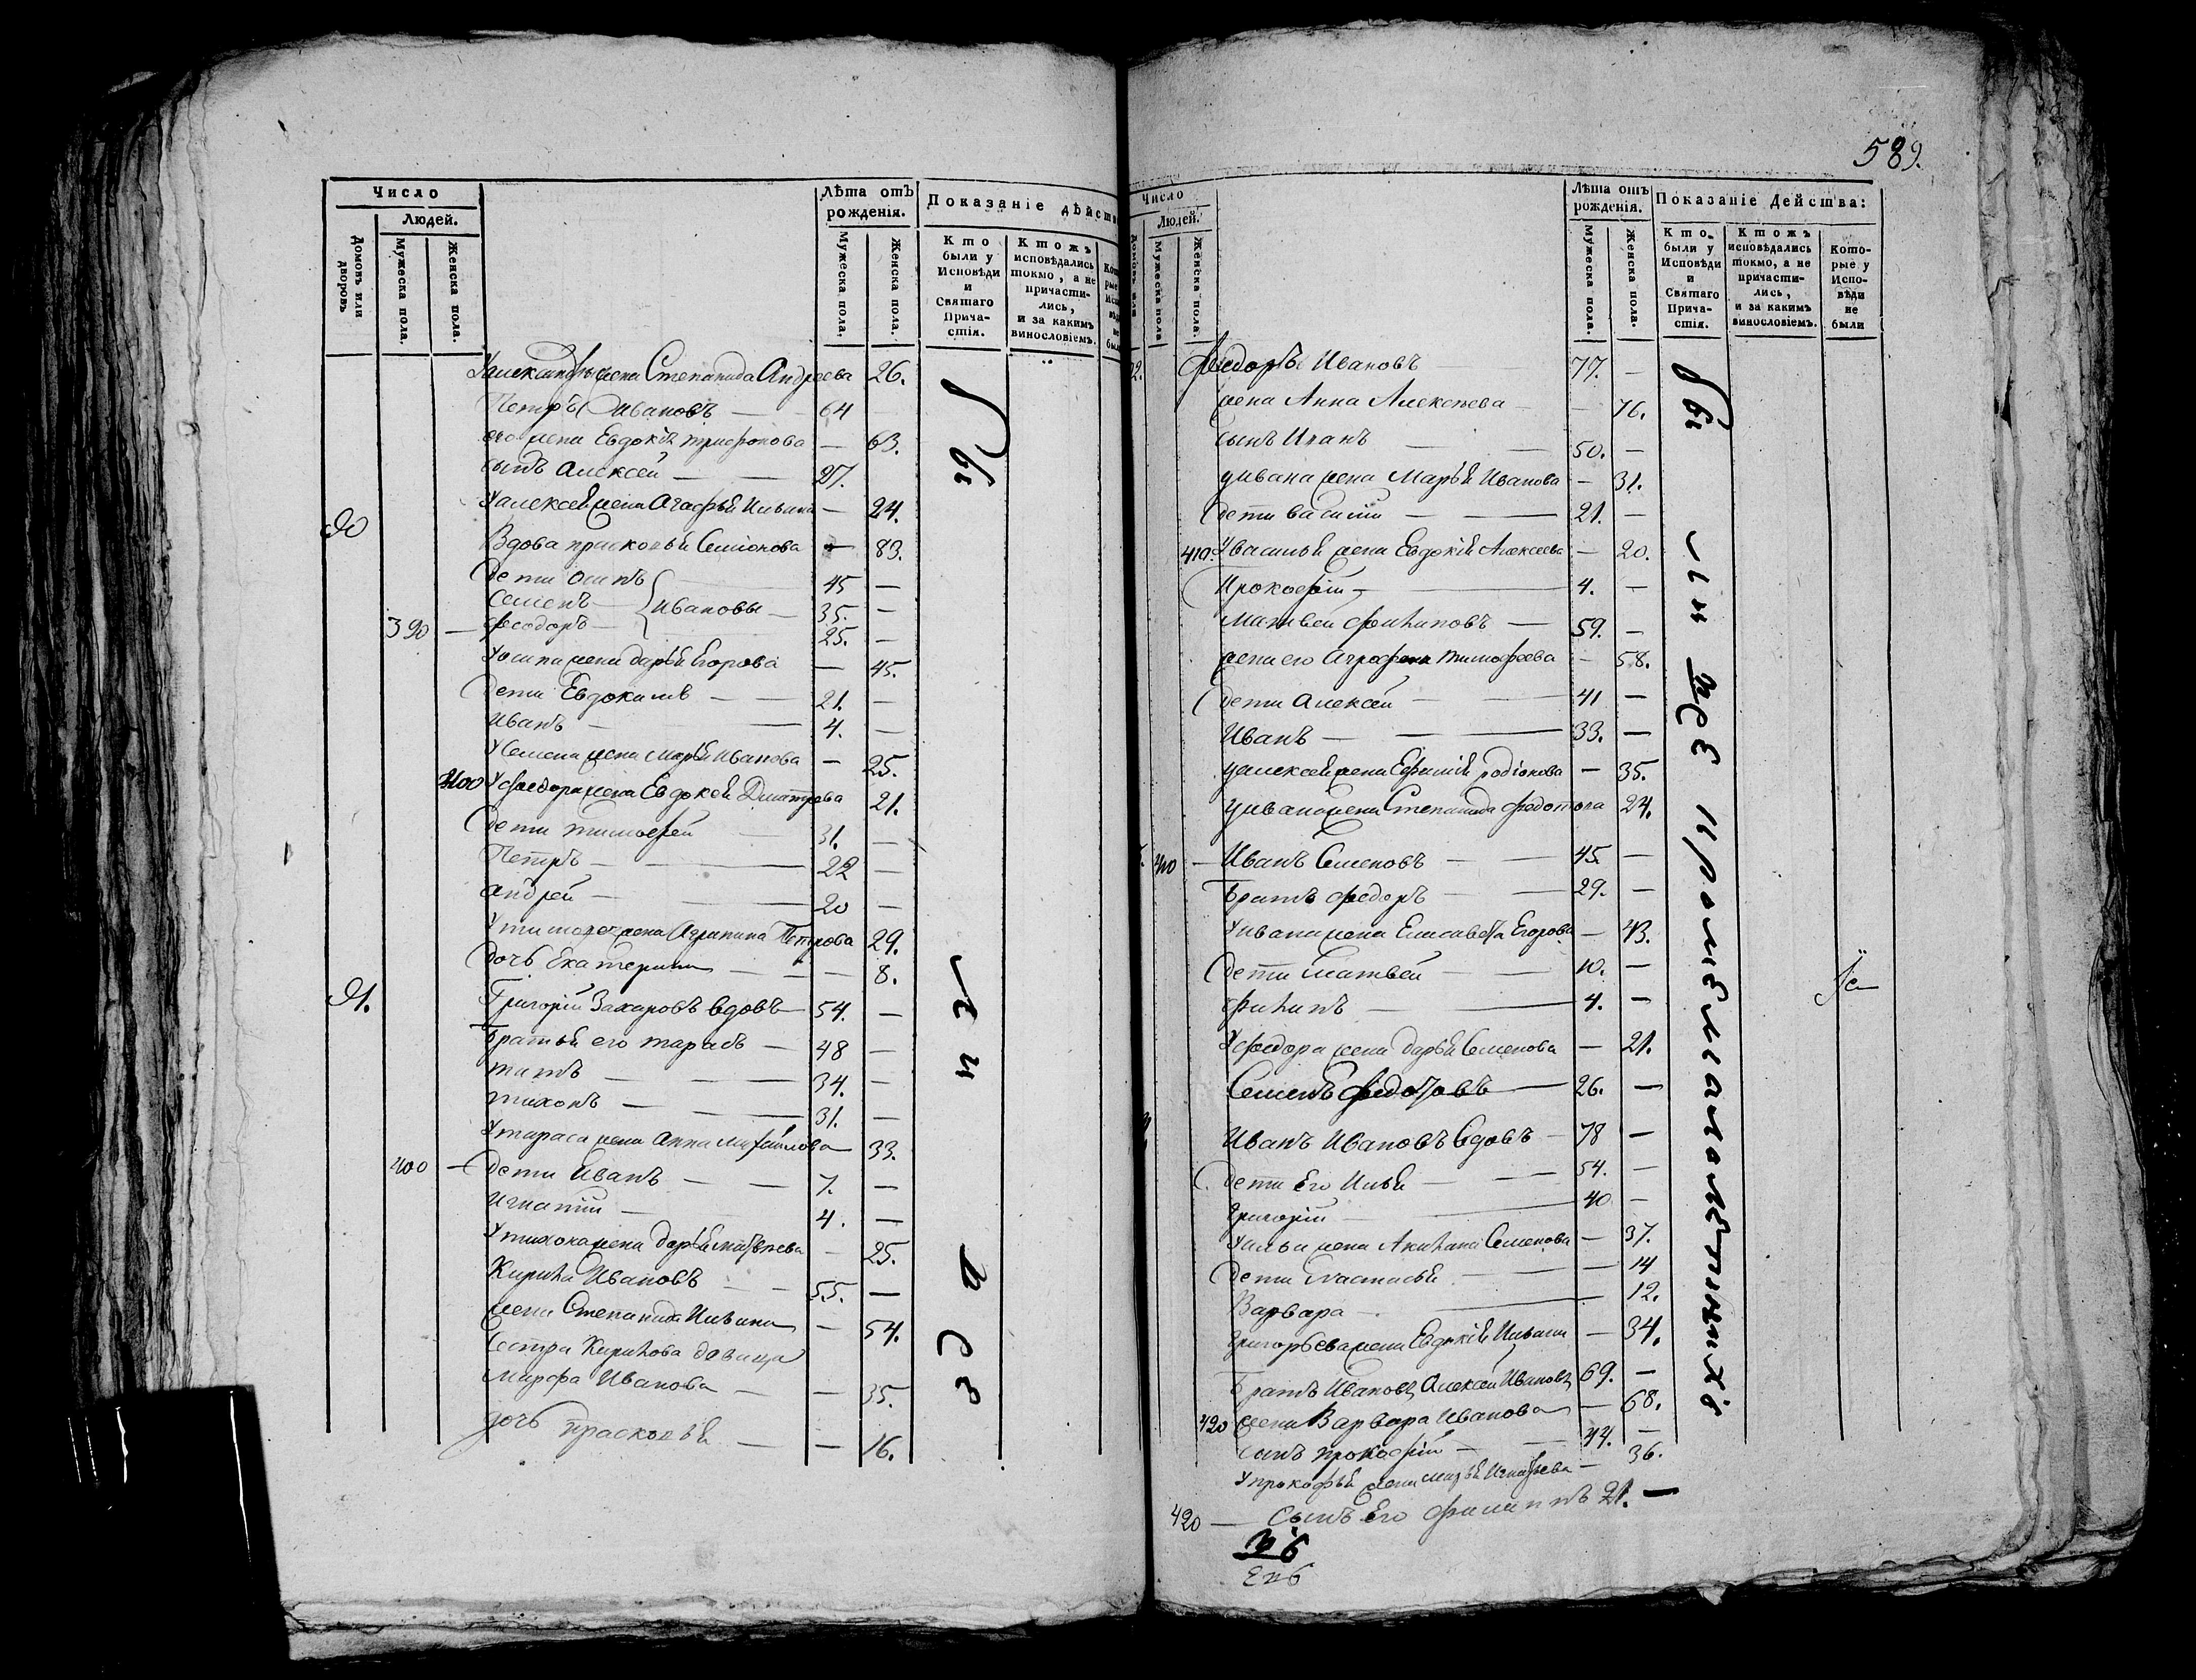 589.
Число
Людей.
Домовъ или дворовъ
Мужеска пола.
Женска пола.
Лѣта отъ рожденія.
Мужеска пола.
Женска пола.
Показаніе дѣйств
Кто были у Исповѣди и Святаго Прича-стія.
Ктожъ исповѣдались токмо, а не причасти-лись, и за какимъ винословіемъ.
У александра жена Степанида Андреева 26.
Петръ Ивановъ — 64
его жена Евдокія трифонова — 63.
сынъ алексей — 27.
У алексея жена Агафья Ильина — 24.
90
Вдова прасковья Семіонова — 83.
дети осипъ 45 —
семенъ Ивановы — 35. —
390 — феодоръ — 25. —
У осипа жена дарья Егорова — 45.
дети Евдокимъ — 21. —
Иванъ — 4. —
У Семена жена марья Иванова — 25.
400 У феодора жена Евдокея Дмитрева 21.
дети тимофей 31. —
Петръ — 22 —
андрей — 20 —
У тимофея жена Агрипина Петрова 29.
дочь Екатерина — 8.
91.
Григорій Захаровъ вдовъ 54. —
братья его тарасъ — 48 —
титъ — 34. —
тихонъ — 31. —
У тараса жена анна михайлова 33.
400 — дети Иванъ — 7. —
Игнатій — 4. —
У тихона жена дарья матвѣева — 25.
Кирила Ивановъ — 55. —
жена Степанида Ильина — 54.
сестра Кирилова девица
марфа Иванова — 35.
дочь прасковья — 16.
бы
ли
всѣ
Число
Людей.
Мужеска пола
Женска пола.
Лѣта отъ рожденія.
Мужеска пола.
Женска пола.
Показаніе Дейсшва:
Кто были у Исповѣди и Святаго Прича-стія.
Ктожъ исповѣдались токмо, а не причасти-лись, и за какимъ винословіемъ.
Кото-рые у Испо-вѣди не были
92. федоръ Ивановъ 77. —
жена Анна Алексѣева — 76.
сынъ Иванъ 50. —
у ивана жена Марья Иванова — 31.
дети василій — 21. —
410. У василья жена Евдокія Алексеева — 20.
Прокофій — 4. —
матвей филиповъ — 59. —
жена его Аграфена тимофеева — 58.
дети алексей — 41 —
Иванъ — 33. —
У алексея жена Ефимія родіонова — 35.
У ивана жена Степанида федотова 24.
410 — Иванъ Семеновъ — 45. —
братъ федоръ — 29. —
У ивана жена Елисавета Егорова — 43.
дети матвей — 10. —
филипъ — 4. —
У федора жена дарья Семенова — 21.
Семенъ федотовъ — 26. —
Иванъ Ивановъ вдовъ — 78 —
дети Его Илья — 54. —
григорій — 40 —
У ильи жена Акилина Семенова — 37.
дети настасья — 14
Варвара — 12.
григорьева жена Евдокія Ильина — 34.
братъ Ивановъ Алексей Ивановъ 69. —
420 жена Варвара Иванова — 68.
сынъ прокофій — 44. —
У прокофья жена марья Игнатьева — 36.
420 — сынъ Его филиппъ 21. —
бы
ли
всѣ
кромѣ
малолѣтныхъ